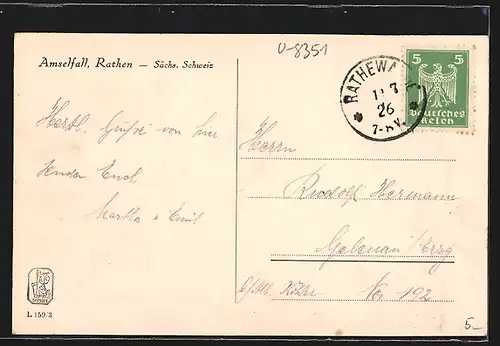 U-8351
Amselfall, Rathen — Sächs. Schweiz
RATHEWA
26
7-8 V.
5 5
Deutsches
Reich
Herzl. Grüße von hier
senden Euch
Martha u Emil
Herrn
Rudolf Hermann
Gelenau / Erzg
No. 192
L 159/3
5.-